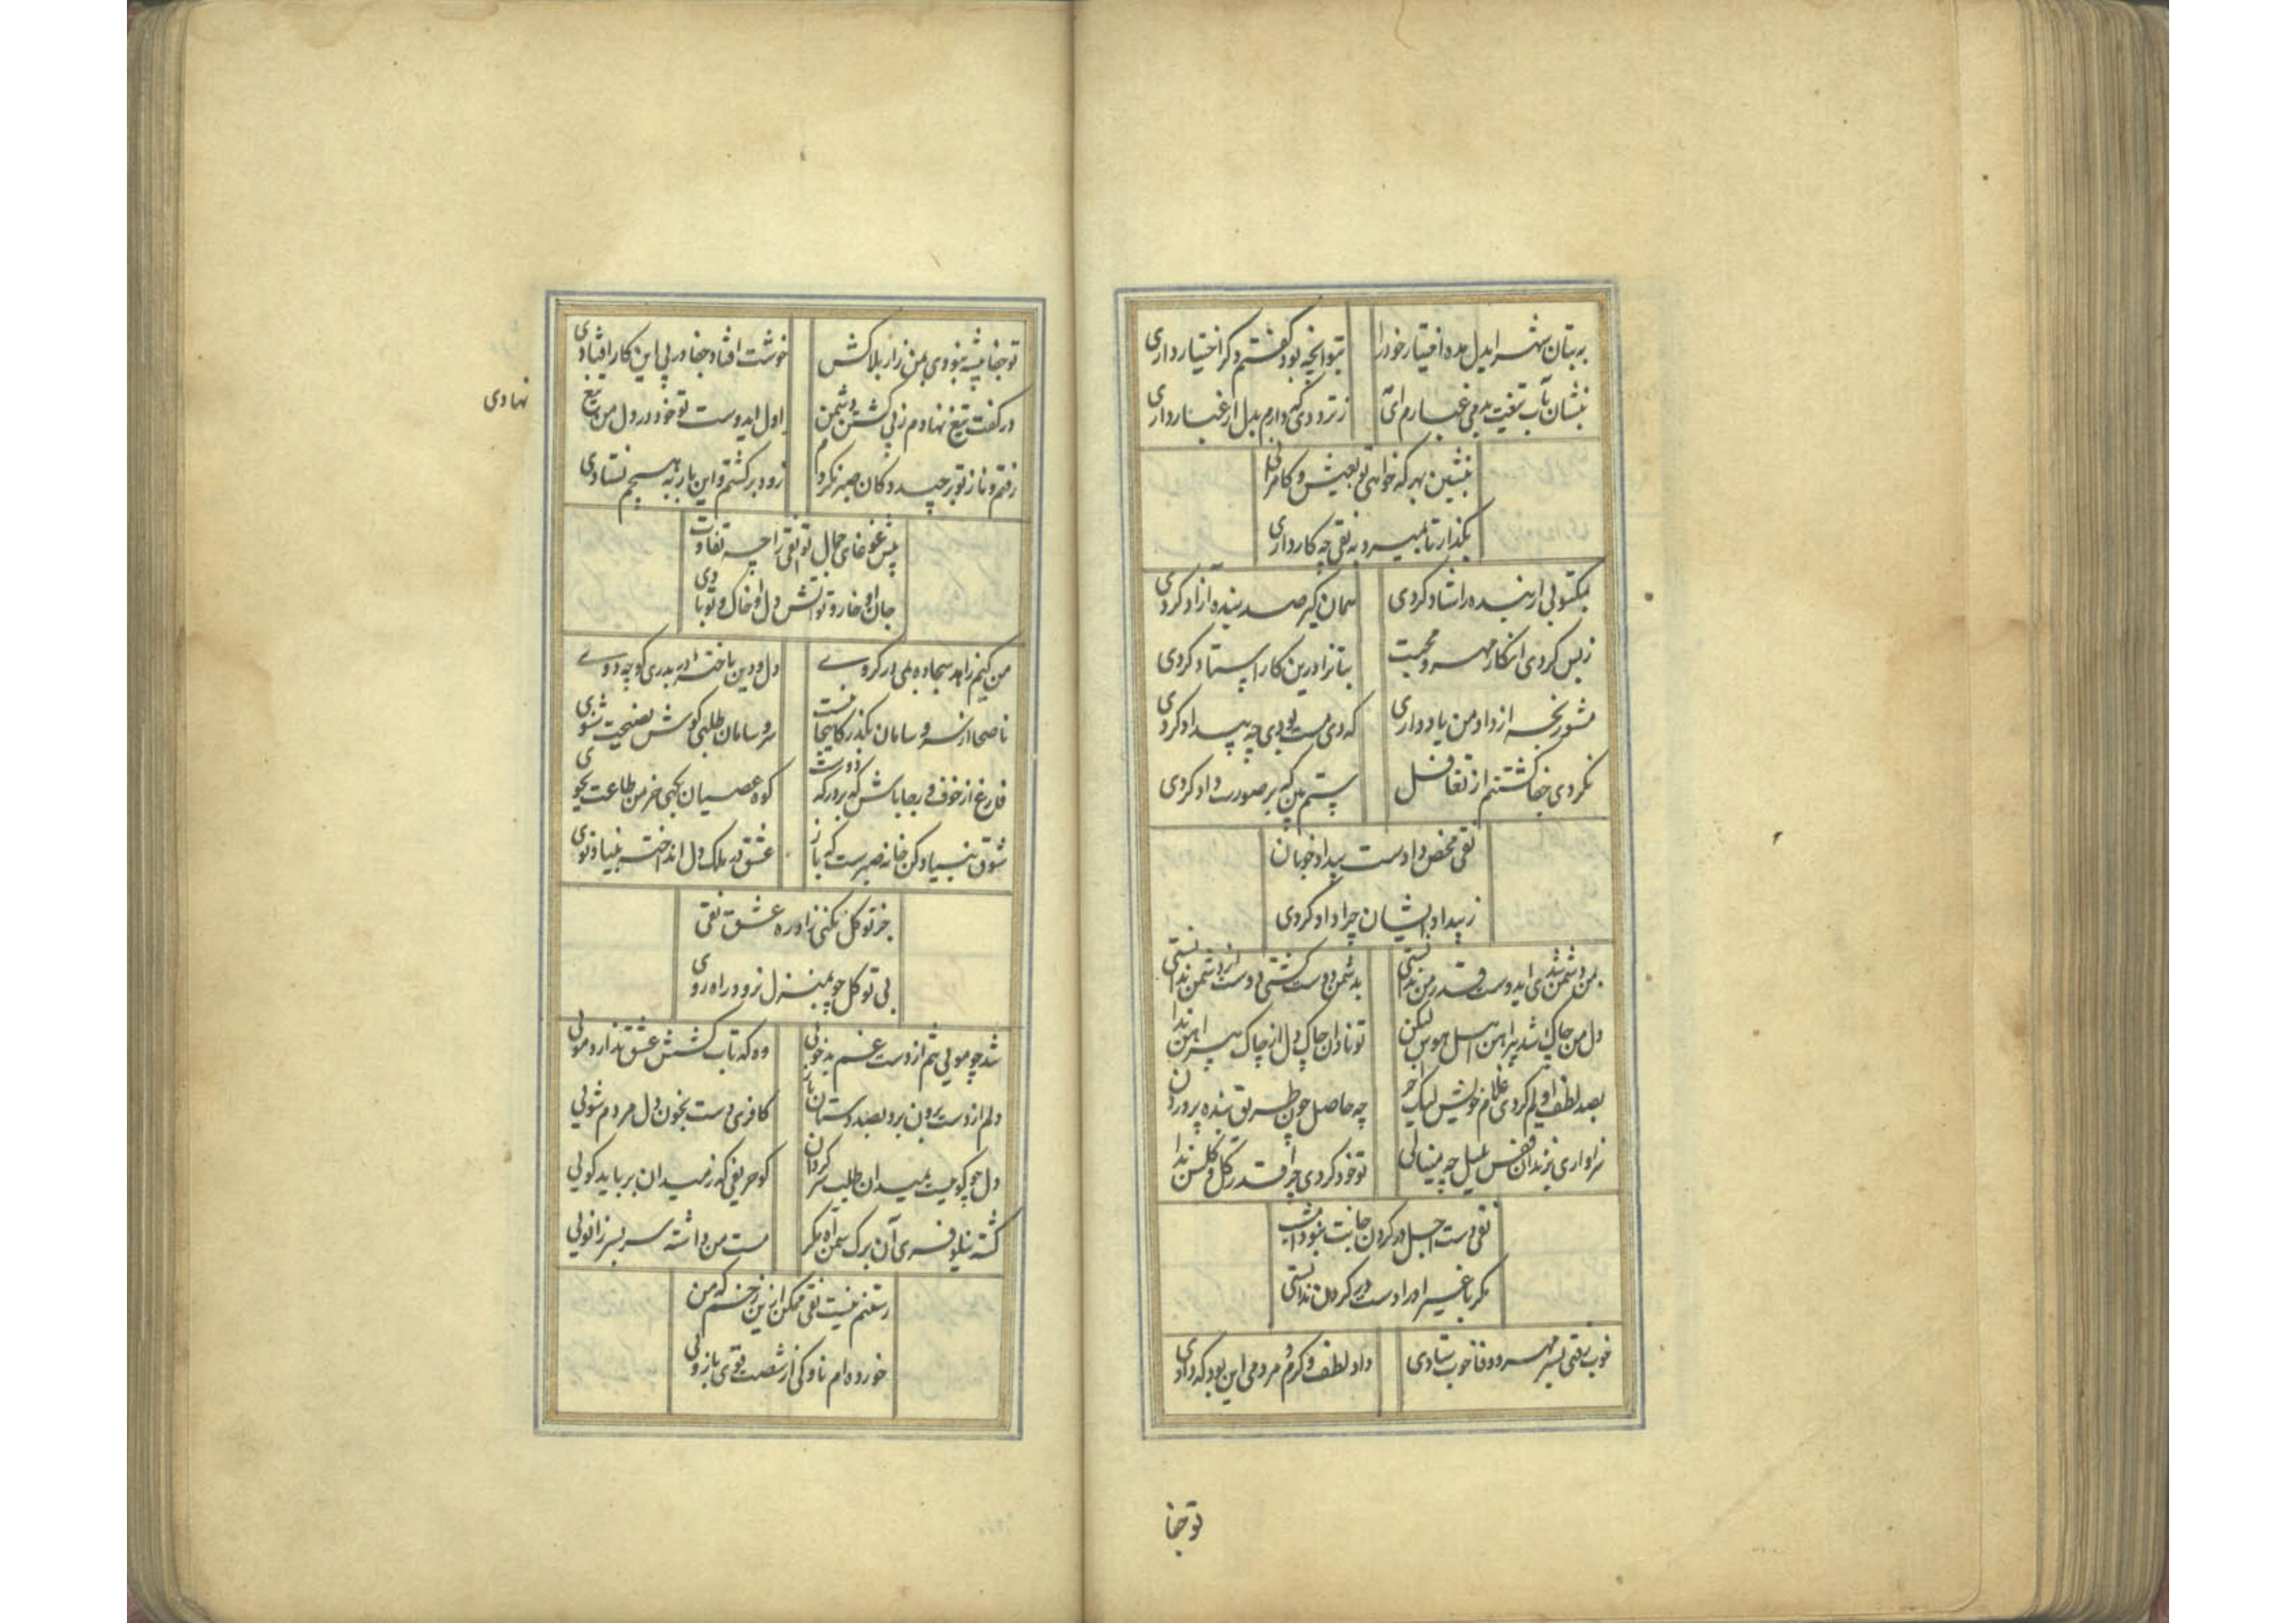 به بتان شهر ایدل مده اختیار خود را    بتو انچه بود گفتم دگر اختیار داری
بنشان بآب تیغت بدمی غبارم ای    ز تردوی که دارم بدل ار غبار داری
بنشین بهر که خواهی تو بعیش و کامرانی
بگذار تا بمیرد به نقی چه کار داری
بمکتوبی ار بنده را شاد کردی    همان گیر صد بنده آزاد کردی
ز بس کردی انکار مهر و محبت    بتانرا درین کار استاد کردی
مشو رنجه از داد من یاد داری    که دی مست بودی چه بیداد کردی
نکردی جفا کشتنم از تغافل    ستم بین که بر صورت داد کردی
نقی محض دادست بیداد خوبان
ز بیداد ایشان چرا داد کردی
بمن دشمن شدی ایدوست قدر من ندانستی    بدشمن دوست گشتی دوست از دشمن ندانستی
دل من چاک شد پیراهن اهل هوس لیکن    تو نادان چاک دل از چاک پیراهن ندا
بصد لطف اولم کردی غلام خویش لیک آخر    چه حاصل چون طریق بنده پروردن
سزاواری بزندان قفس بلبل چه مینالی    تو خود کردی چرا قدر گل و گلشن ندا
نقی دست اجل در گردن جانت نبود امشب
مگر با غیر او را دست در گردن ندانستی
خوب رفتی بسر مهر و وفا خوب ستادی    داد لطف و کرم و مردمی این بود که دادی
تو جفا
تو جفا پیشه نبودی بمن زار بلاکش    خوشت افتاد جفا در پی این کار افتادی
در کفت تیغ نهادم ز پی کشتن دشمن    اول ایدوست تو خود در دل من تیغ
نهادی
رفتم و ناز تو بر چید دکان صبر نکردم    زود برگشتم و این بار به هیچم نستادی
پیش غوغای جمال تو نقی را چه تفاوت
جان او خار و تو آتش دل او خاک و تو بادی
من کیم زاهد سجاده بمی در گروے    دل و دین باخته در بدری کوچه دوے
ناصحا از سر و سامان بگذر کاینجا نیست    سر و سامان طلبی گوش نصیحت شنوی
فارغ از خوف و رجا باش که بر درگه دوست    کوه عصیان بجوی خرمن طاعت بجوی
شوق بنیاد کن خانه صبرست که باز    عشق در ملک دل انداخته بنیاد نوی
جز توکل نکنی زاد ره عشق نقی
بی توکل چو بمنزل نرود راه روی
شد چو مویی تنم از دست غم بدخویی    وه که تاب کشش عشق ندارد مویی
دلم از دست برون برد بصد دستان باز    کافری دست بخون دل مردم شویی
دل چو گوییست بمیدان طلب سر گردان    کو حریفی که ز میدان برباید گویی
گشته نیلوفری آن برگ سمن آه مگر    مست من داشته سر بر سر زانویی
رستنم نیست نقی ممکن ازین زخم که من
خورده ام ناوکی از شصت قوی بازویی